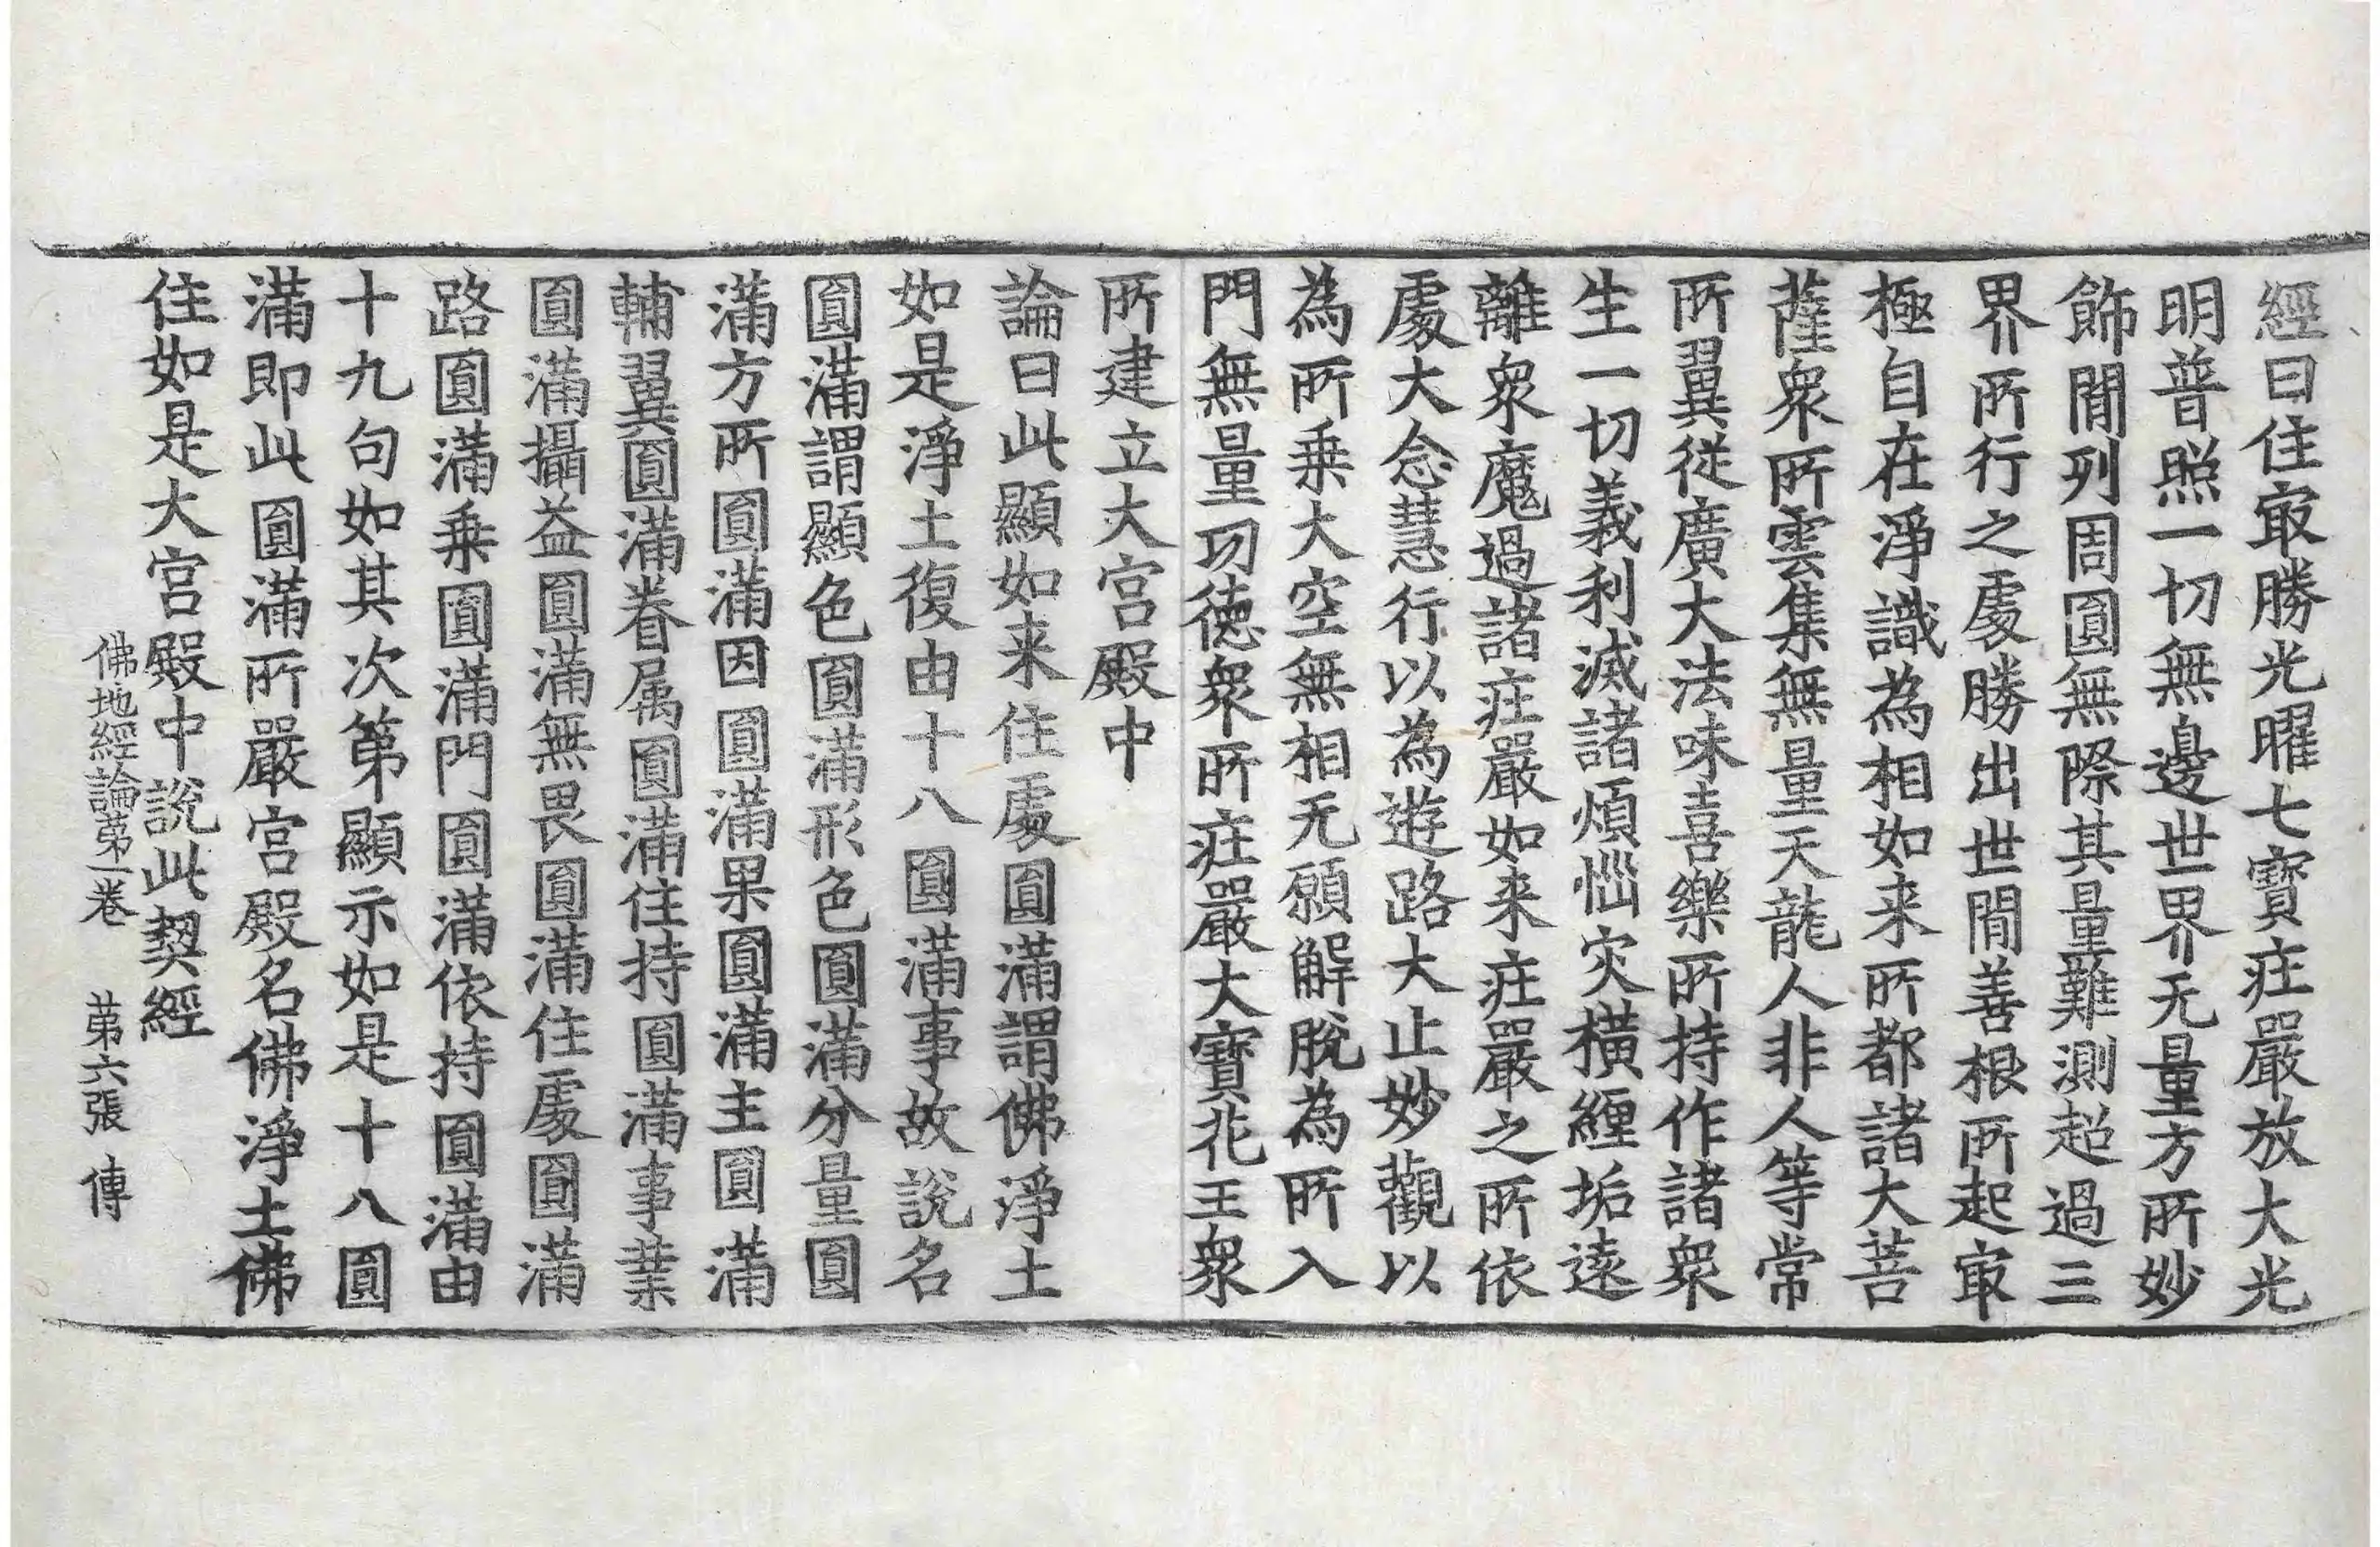 經曰住㝡勝光曜七寶疘嚴放大光
明普照一切無邊世界无量方所妙
飾間列周圓無際其量難測超過三
界所行之處勝出世間善根所起㝡
極自在淨識為相如来所都諸大菩
薩衆所雲集無量天龍人非人等常
所翼從廣大法味喜樂所持作諸衆
生一切義利滅諸煩惱灾橫纏垢遠
離衆魔過諸疘嚴如来疘嚴之所依
處大念慧行以為遊路大止妙觀以
為所乗大空無相无願解脫為所入
門無量功德衆所疘嚴大寶花王衆
所建立大宫殿中
論曰此顯如来住處圓滿謂佛淨土
如是淨土復由十八圓滿事故說名
圓滿謂顯色圓滿形色圓滿分量圓
滿方所圓滿因圓滿果圓滿主圓滿
輔翼圓滿眷属圓滿住持圓滿事業
圓滿攝益圓滿無畏圓滿住處圓滿
路圓滿乗圓滿門圓滿依持圓滿由
十九句如其次第顯示如是十八圓
滿即此圓滿所嚴宫殿名佛淨土佛
住如是大宫殿中說此契經
佛地經論苐一卷 苐六張 傳